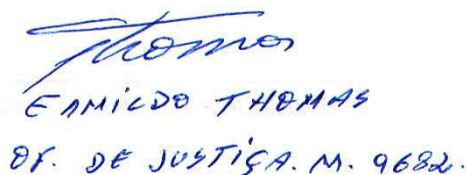 Thomas
ERMILDO THOMAS
OF. DE JUSTIÇA. M. 9682.